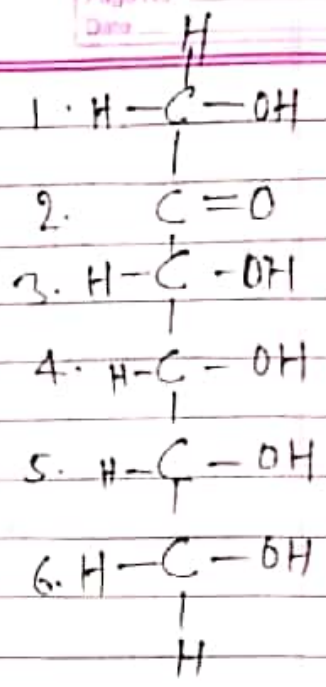 Date
H
1. H-C-OH
2. C=O
3. H-C-OH
4. H-C-OH
5. H-C-OH
6. H-C-OH
H